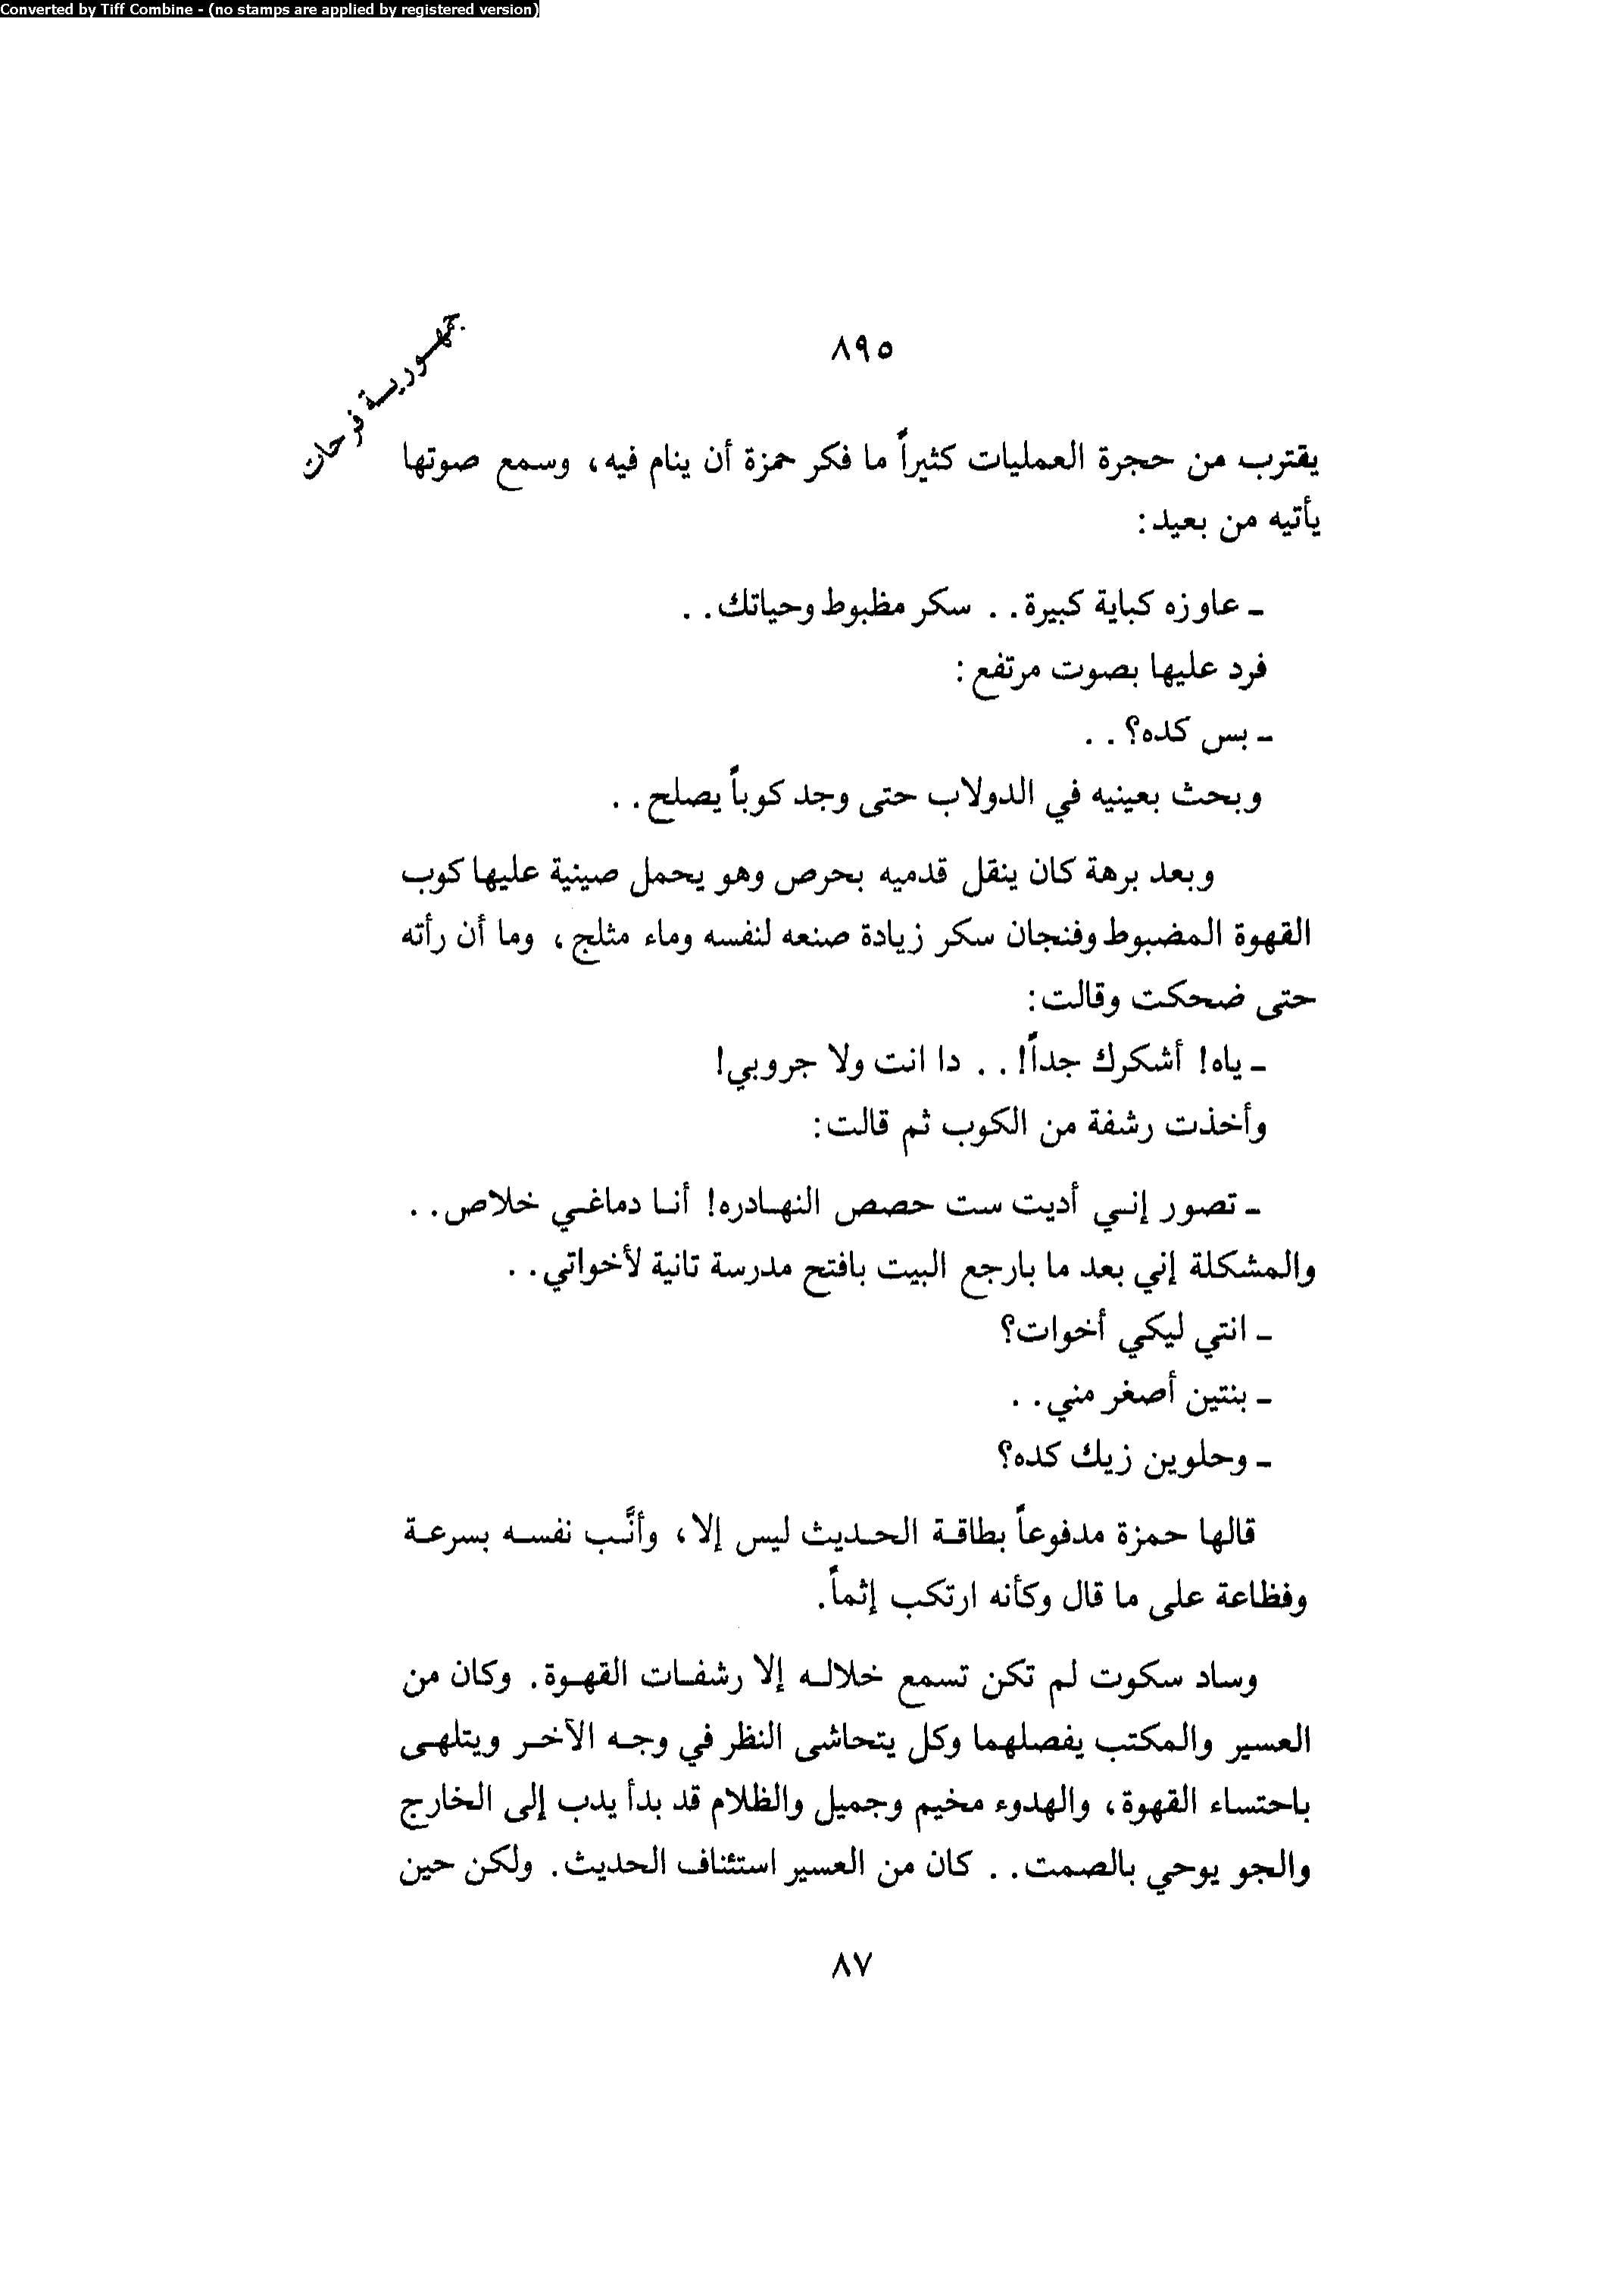 Converted by Tiff Combine - (no stamps are applied by registered version)
٨٩٥
جمهورية فرحات
يقترب من حجرة العمليات كثيراً ما فكر حمزة أن ينام فيه، وسمع صوتها
يأتيه من بعيد:
ـ عاوزه كباية كبيرة.. سكر مظبوط وحياتك..
فرد عليها بصوت مرتفع:
ـ بس كده؟..
وبحث بعينيه في الدولاب حتى وجد كوباً يصلح..
وبعد برهة كان ينقل قدميه بحرص وهو يحمل صينية عليها كوب
القهوة المضبوط وفنجان سكر زيادة صنعه لنفسه وماء مثلج، وما أن رأته
حتى ضحكت وقالت:
ـ ياه! أشكرك جداً!.. دا انت ولا جروبي!
وأخذت رشفة من الكوب ثم قالت:
ـ تصور إني أديت ست حصص النهادره! أنا دماغي خلاص..
والمشكلة إني بعد ما بارجع البيت بافتح مدرسة تانية لأخواتي..
ـ انتي ليكي أخوات؟
ـ بنتين أصغر مني..
ـ وحلوين زيك كده؟
قالها حمزة مدفوعاً بطاقة الحديث ليس إلا، وأنَّب نفسه بسرعة
وفظاعة على ما قال وكأنه ارتكب إثماً.
وساد سكوت لم تكن تسمع خلاله إلا رشفات القهوة. وكان من
العسير والمكتب يفصلهما وكل يتحاشى النظر في وجه الآخر ويتلهى
باحتساء القهوة، والهدوء مخيم وجميل والظلام قد بدأ يدب إلى الخارج
والجو يوحي بالصمت.. كان من العسير استئناف الحديث. ولكن حين
٨٧